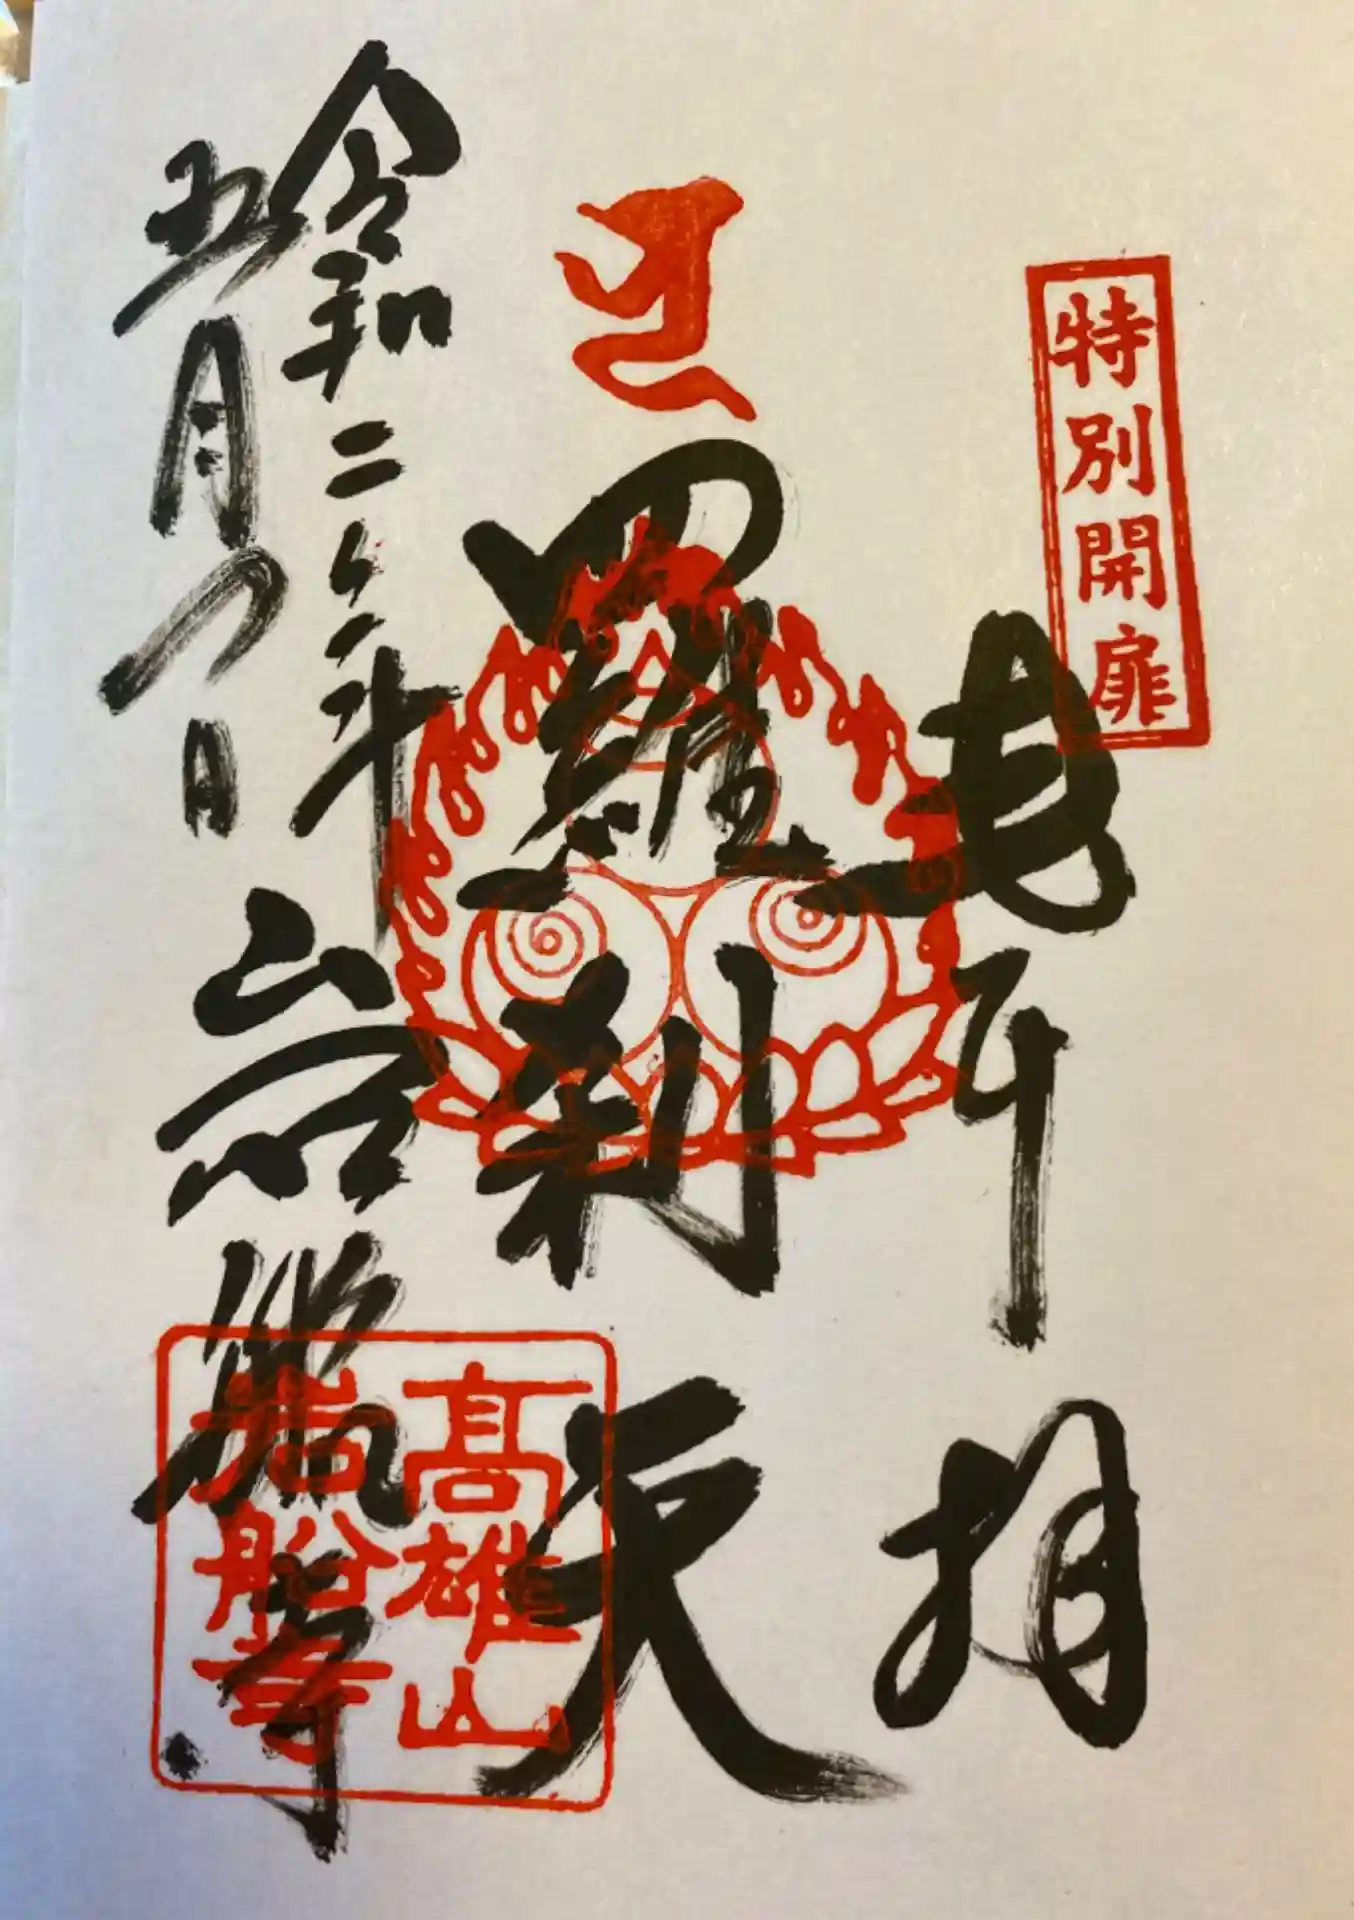 特別開扉
奉拝
羅刹天
令和二年
五月
岩船寺
高雄山
岩船寺